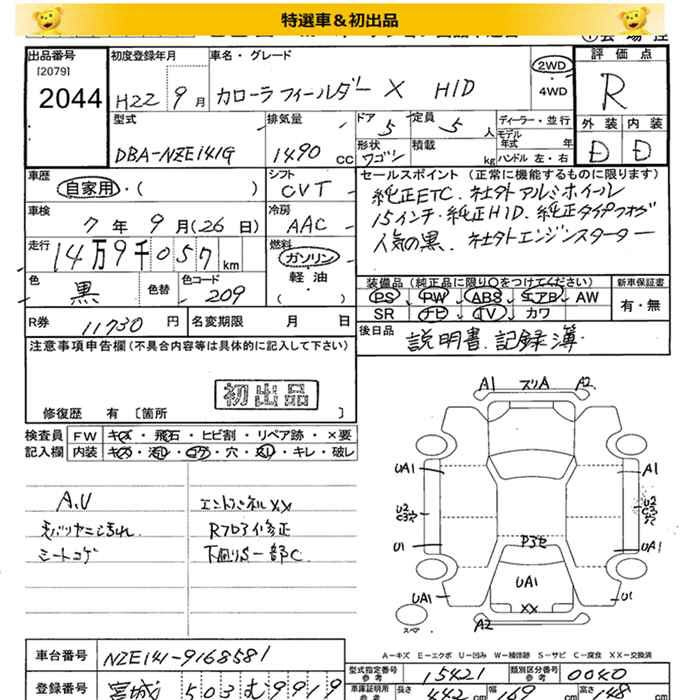 特選車＆初出品
出品番号
[2079]
2044
初度登録年月
H22 9月
車名・グレード
カローラフィールダー X HID
2WD
・
4WD
評価点
R
外装 内装
D D
型式
DBA-NZE141G
排気量
1490 CC
ドア
5
定員
5 人
形状
ワゴン
積載
kg
ディーラー・並行
モデル
年式 年
ハンドル 左・右
車歴
自家用・( )
シフト
CVT
車検
7年 9月(26日)
冷房
AAC
走行
14万9千057 km
燃料
ガソリン
軽・油
( )
色
黒
色替
色コード
209
セールスポイント (正常に機能するものに限ります)
純正ETC. 社外アルミホイール
15インチ・純正HID. 純正タイプフォグ
人気の黒. 社外エンジンスターター
装備品 (純正品に限り○をつけてください)
PS PW ABS エアB AW
SR ナビ TV カワ
新車保証書
有・無
R券 11730 円
名変期限 月 日
後日品
説明書. 記録簿
注意事項申告欄(不具合内容等は具体的に記入して下さい)
初出品
修復歴 有〔箇所 〕
検査員
記入欄
FW キズ・飛石・ヒビ割・リペア跡・×要
内装 キズ・汚れ・コゲ・穴・スレ・キレ・破レ
A.U
シートコゲ
エンドパネルXX
Rフロア修正
下回りS一部C
A1 スリA A2
UA1 A1
U2 U2
U1 P3セ UA1
UA1 UA1 U1
XX
A2
スペア
A－キズ E－エクボ U－凹み W－補修跡 S－サビ C－腐食 XX－交換済
車台番号 NZE141-9168581
登録番号 宮城 503 む 9919
型式指定番号
参考
15421
類別区分番号
参考
0040
車庫証明用
参考
長さ 442 cm 幅 169 高さ